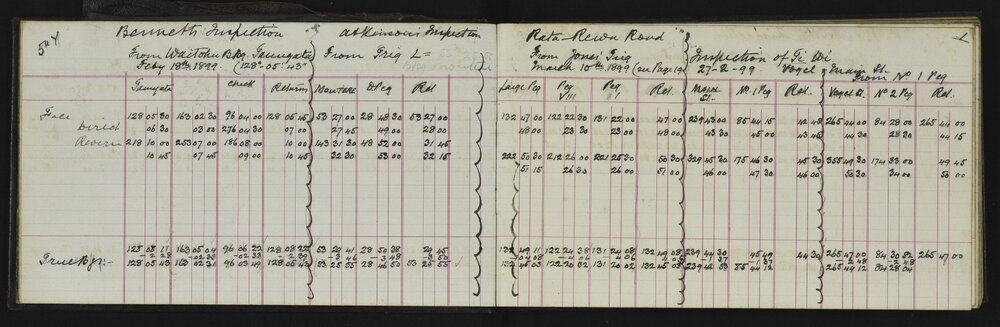 Bennett's Inspection
Atkinson's Inspection
From Waitohu Bdg. Taungata
From Trig L =
Feby 18th 1899. (128° 05' 43"
Taungata Check Returns Peg Ret
Face 128 05 30 163 02 30 96 04 00 128 05 45 53 27 00 28 48 30 53 27 00
Direct 06 30 03 00 276 04 30 07 00 27 45 49 00 28 00
Reverse 218 10 00 253 07 00 186 08 00 10 00 143 31 30 48 52 00 31 45
10 45 07 45 09 00 10 45 32 30 53 00 32 15
128 08 11 163 05 04 96 06 22 128 08 22 53 29 41 28 50 38 29 45
True Bgs:- 128 05 43 163 02 31 96 03 49 128 05 43 53 25 55 28 46 50 53 25 55
Rata - Rewa Road
From Jones' Trig
Inspection of Ti Wi
March 10th 1899 (on Page 19) 27-2-99 Vogel & Main St. From No 1 Peg
Large Peg Peg VIII Peg VI Ret. St. No. 1 Peg Ret. Vogel St. No 2 Peg Ret.
132 47 00 122 22 30 131 22 00 47 00 239 43 00 85 44 15 42 45 265 44 00 84 28 00 265 44 00
48 00 23 30 23 00 48 00 43 30 45 00 43 45 44 30 28 30 44 15
222 50 30 212 26 00 221 25 30 50 30 329 45 30 175 46 30 45 30 355 49 30 174 33 00 49 45
51 15 26 30 26 00 51 00 46 00 47 30 46 00 50 30 34 00 50 00
132 49 11 122 24 38 131 24 08 132 49 08 239 44 30 45 49 44 30 265 47 00 84 30 52 265 47 00
132 45 03 122 20 32 131 20 02 132 45 03 239 42 53 85 44 12 265 44 12 84 28 04